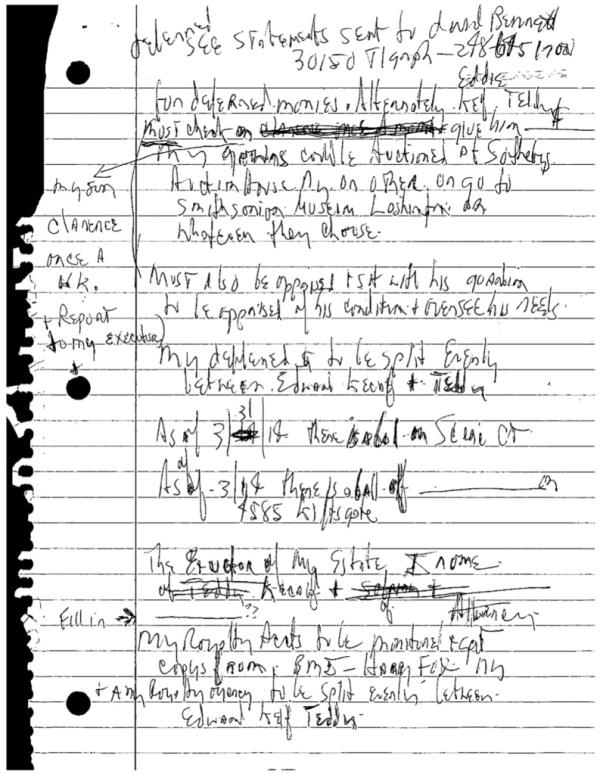 deferred
SEE STATEMENTS SENT to David Bennett
30150 Tlgrph - 248
Eddie
for deferred monies. Alternately Kecf, Teddy
MUST check on clarence once a month + give him $
My gowns could be Auctioned At Sothebys
Auction House NY or other or go to
Smithsonian Museum Washington or
whatever they choose.
my son
CLARENCE
once A
WK.
+ REPORT
to my executor
Must Also be apprised + sit with his guardian
to be apprised of his condition + oversee his needs.
My deferred is to be split Evenly
between Edward Kecalf + Teddy
As of 3/31/14 there is a bal on Scenic CT
As of 3/14 there is a bal of on
4585
The Executor of My Estate I name
of Teddy Kecalf +
Attorney
Fill in → ??
My Royalty Accts to be monitored + get
copys from BMI - HARRY FOX NY
+ Any Royalty Agency to be split evenly between
Edward Kecf Teddy.